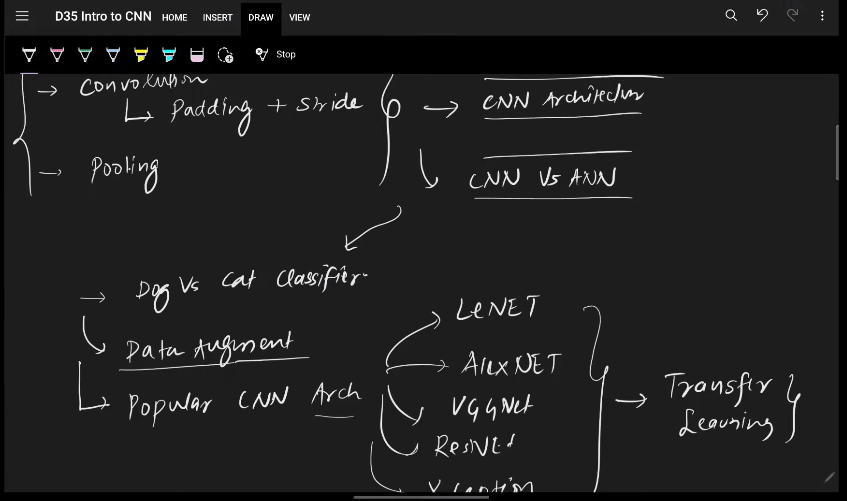 D35 Intro to CNN HOME INSERT DRAW VIEW
Stop
Convolution
Padding + Stride
Pooling
CNN Architectur
CNN Vs ANN
Dog Vs Cat Classifier
Data Augment
Popular CNN Arch
LeNET
AlexNET
VGGNet
ResNet
Xception
Transfer
Learning